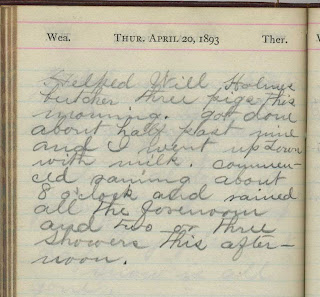 Wea. THUR. APRIL 20, 1893 Ther.
Helped Will Holmes
butcher three pigs this
morning. got done
about half past nine
and I went up town
with milk. commen-
ced raining about
8 o'clock and rained
all the forenoon
and two or three
showers this after-
noon.